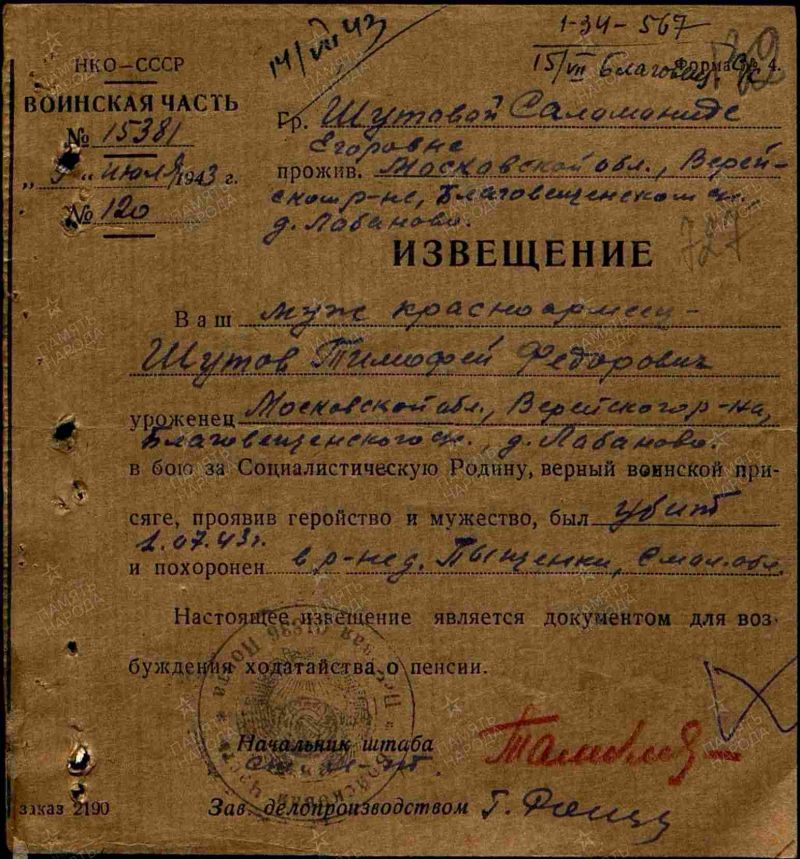 14/VII 43
1-34-567
15/VII Благовещ. с/с
Форма № 4.
НКО—СССР
ВОИНСКАЯ ЧАСТЬ
№ 15381
"5" июля 1943 г.
№ 120
Гр. Шутовой Саломаниде
Егоровне
прожив. Московской обл., Верей-
ском р-не, Благовещенском с/с.,
д. Лабаново.
727
ИЗВЕЩЕНИЕ
Ваш муж красноармеец-
Шутов Тимофей Федорович
уроженец Московской обл., Верейского р-на,
Благовещенского с/с., д. Лабаново.
в бою за Социалистическую Родину, верный воинской при-
сяге, проявив геройство и мужество, был убит
1.07.43г.
и похоронен в р-не д. Пыщенки, Смол. обл.
Настоящее извещение является документом для воз-
буждения ходатайства о пенсии.
Начальник штаба
Зав. делопроизводством
заказ 2190
ПАМЯТЬ НАРОДА